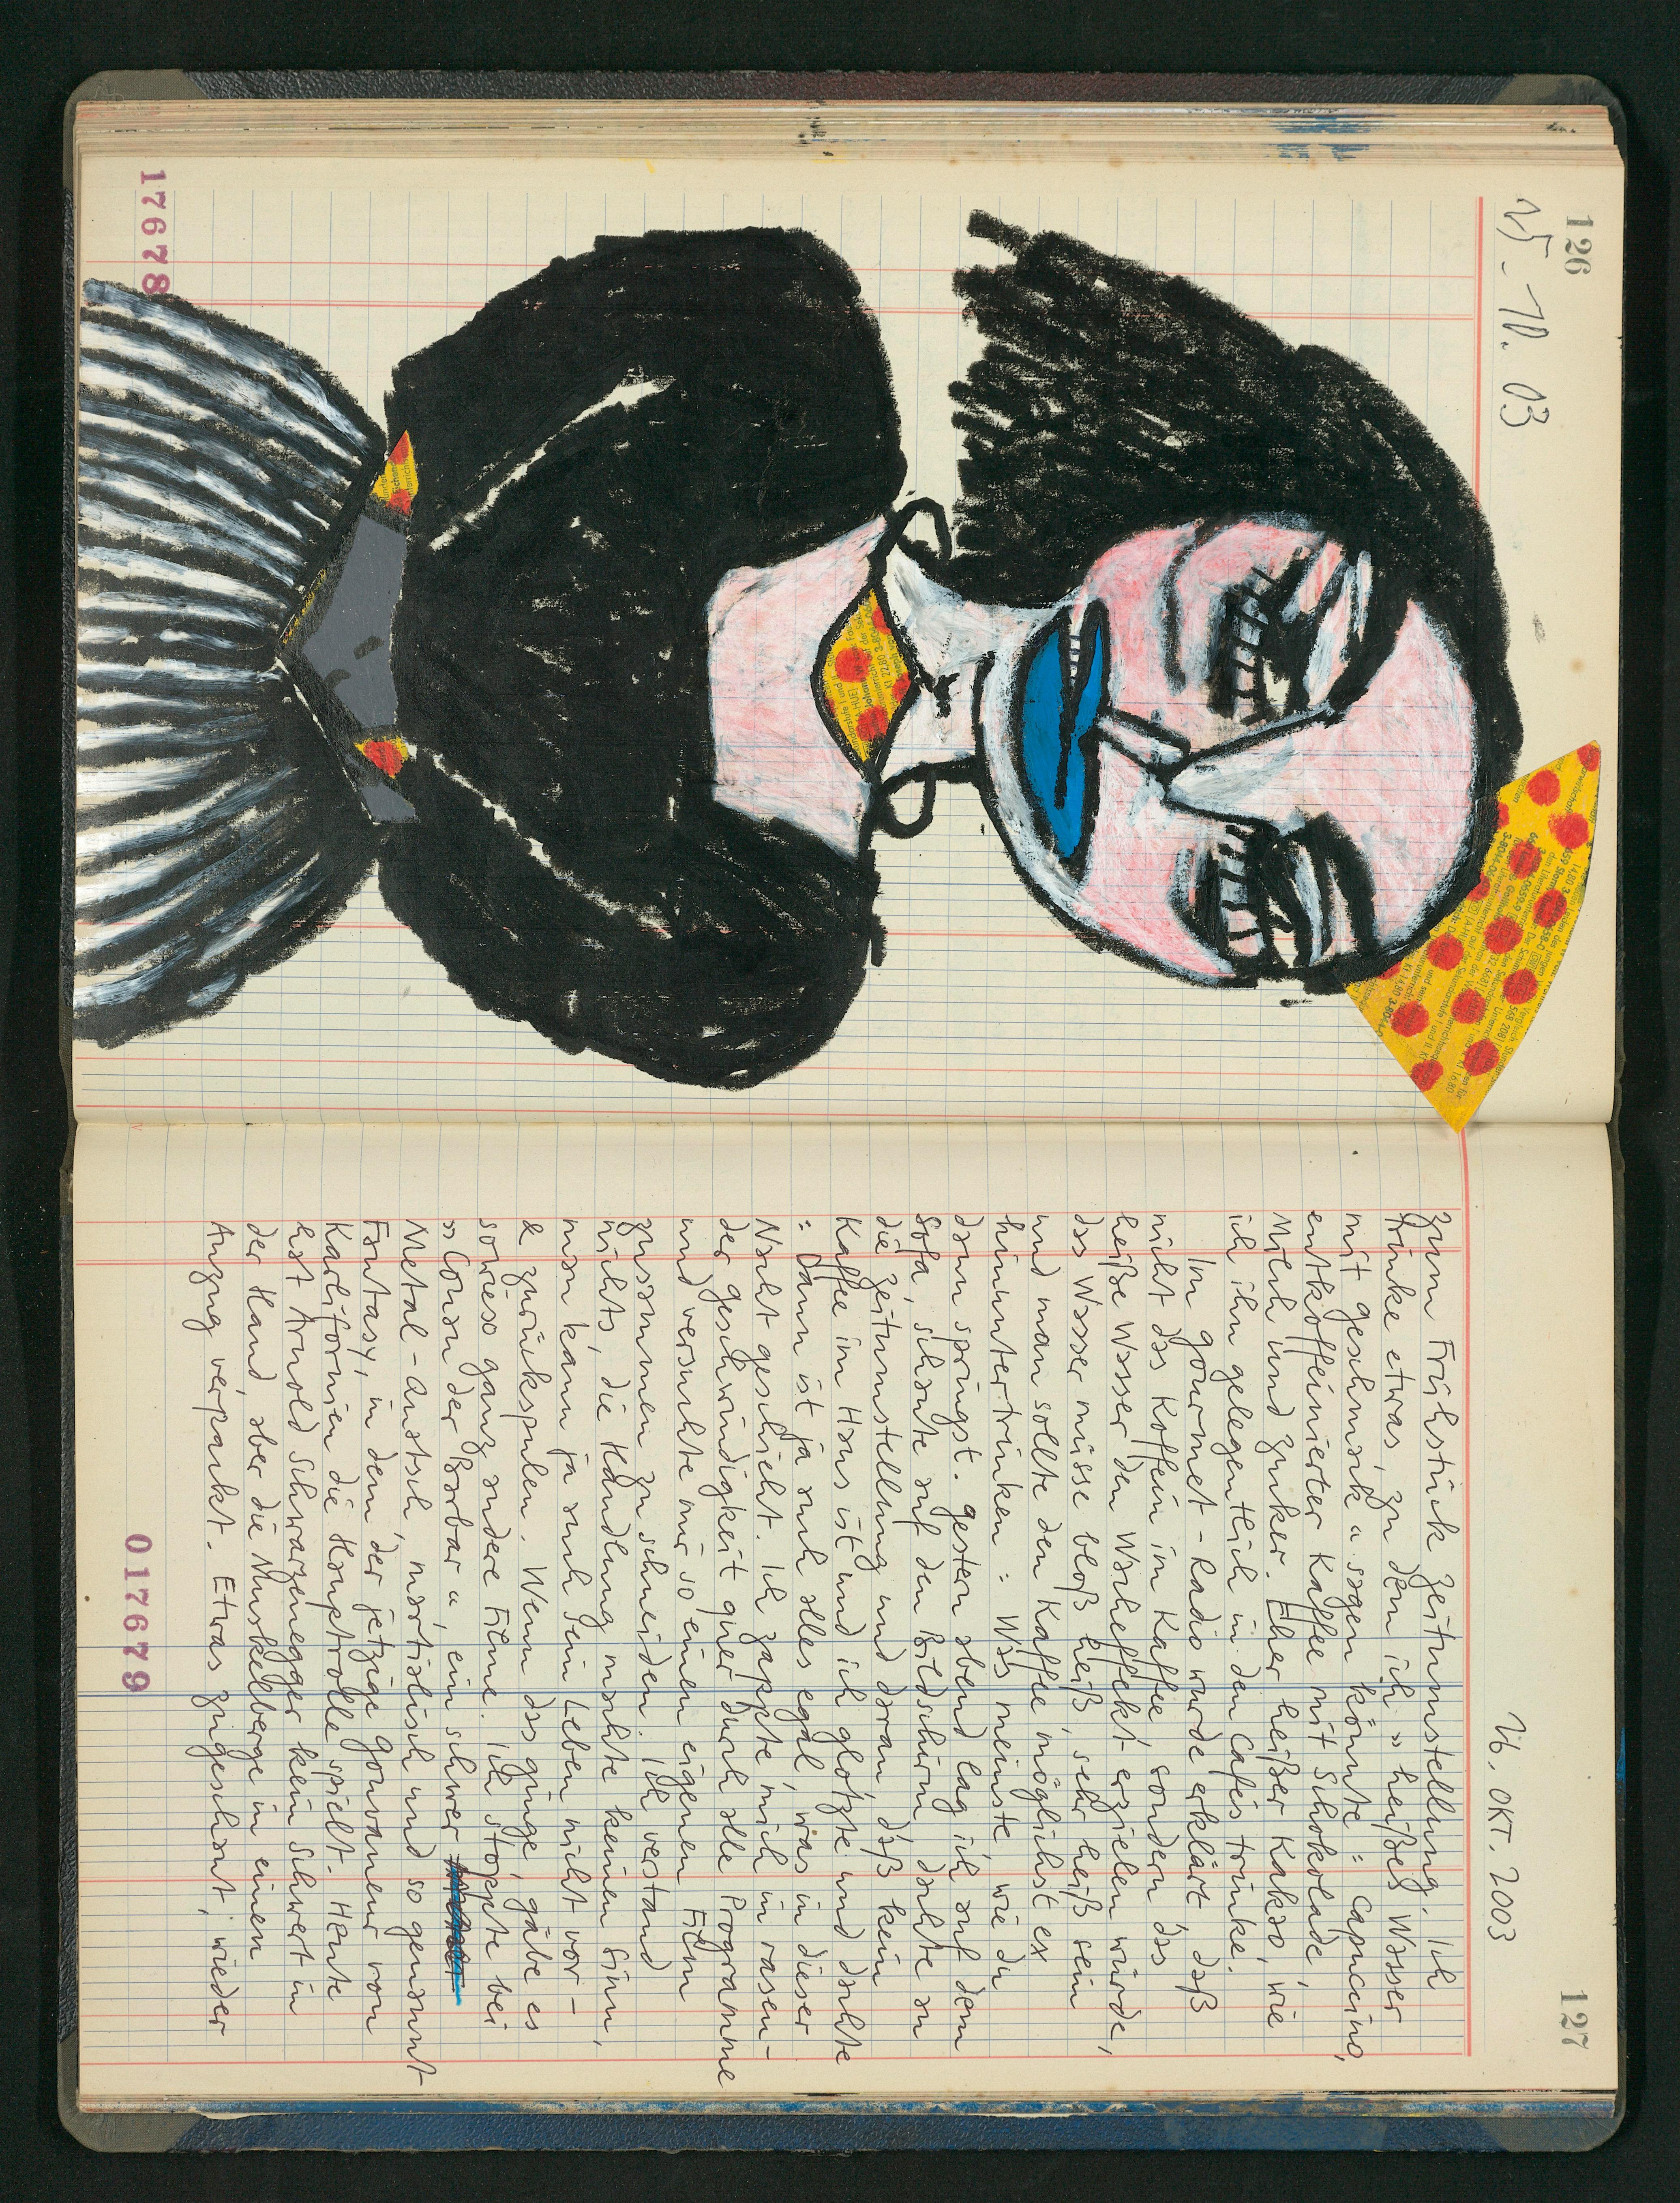 126
25. 10. 03
17678
127
26. OKT. 2003
Zum Frühstück Zeitumstellung. Ich
trinke etwas, zu dem ich » heißes Wasser
mit Geschmack « sagen könnte = Capuccino,
entkoffeinierter Kaffee mit Schokolade,
Milch und Zucker. Eher heißer Kakao, wie
ich ihn gelegentlich in den Cafés trinke.
Im Gourmet-Radio wurde erklärt daß
nicht das Koffein in Kaffee, sondern das
heiße Wasser den Wacheffekt erzielen würde,
das Wasser müsse bloß heiß, sehr heiß sein
und man sollte den Kaffee möglichst ex
hinuntertrinken = Was meinste wie du
dann springst. Gestern abend lag ich auf dem
Sofa, schaute auf den Bildschirm, dachte an
die Zeitumstellung und daran, daß kein
Kaffee im Haus ist und ich glotzte und dachte
= Dann ist ja auch alles egal, was in dieser
Nacht geschieht. Ich zappte mich in rasen-
der Geschwindigkeit quer durch alle Programme
und versuchte mir so einen eigenen Film
zusammen zu schneiden. Ich verstand
nichts, die Handlung machte keinen Sinn,
man kann ja auch sein Leben nicht vor-
& zurückspulen. Wenn das ginge, gäbe es
sowieso ganz andere Filme. Ich stoppte bei
» Conan der Barbar «, ein schwer
Metal-Quatsch, martialisch und so genannt
Fantasy, in dem, der jetzige Gouvaneur von
Karlifornien die Hauptrolle spielt. Heute
hat Arnold Schwarzenegger kein Schwert in
der Hand, aber die Muskelberge in einen
Anzug verpackt. Etwas zugeschaut, wieder
017679